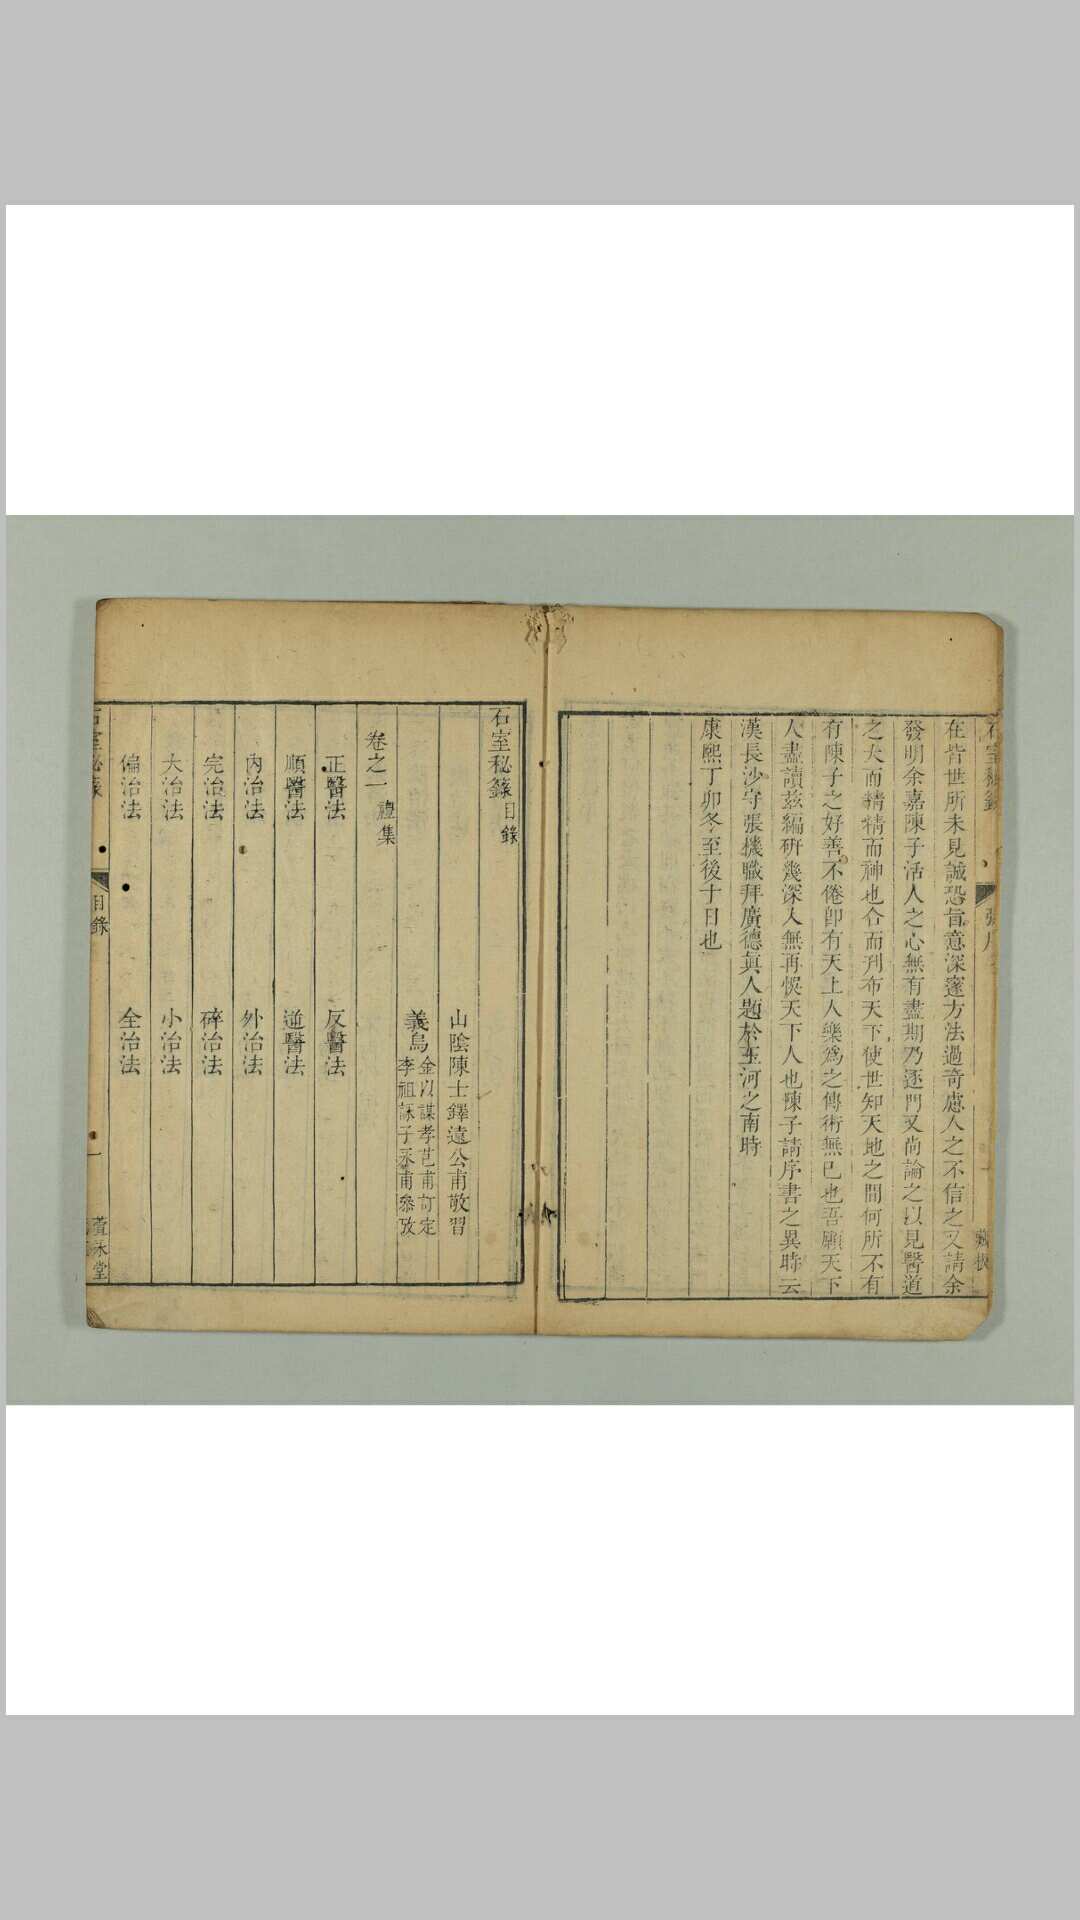 石室秘錄
在皆世所未見誠恐旨意深邃方法過奇慮人之不信之又請余
發明余嘉陳子活人之心無有盡期乃逐門又尚論之以見醫道
之大而精精而神也合而刋布天下使世知天地之間何所不有
有陳子之好善不倦卽有天上人樂爲之傳術無已也吾願天下
人盡讀兹編硏幾深入無再悞天下人也陳子請序書之異時云
漢長沙守張機職拜廣德眞人題於玉河之南時
康熙丁卯冬至後十日也
石室秘錄目錄
山陰陳士鐸遠公甫敬習
義烏
金以謀孝芑甫訂定
李祖詠子永甫參攷
卷之一 禮集
正醫法 反醫法
順醫法 逆醫法
內治法 外治法
完治法 碎治法
大治法 小治法
偏治法 全治法
石室秘錄 目錄 一 萱永堂